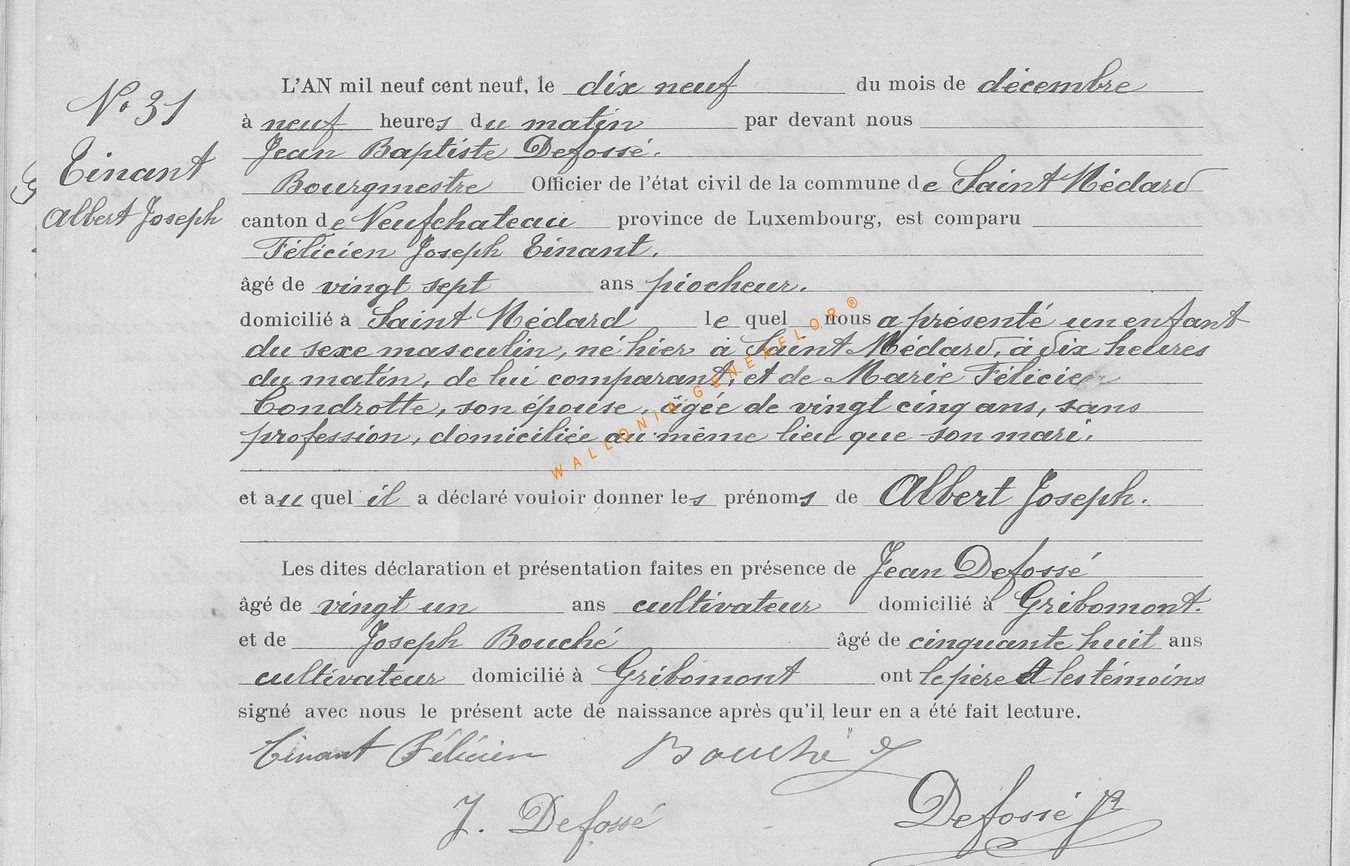 No 31
Tinant
Albert Joseph
L'AN mil neuf cent neuf, le dix neuf du mois de décembre
à neuf heures du matin par devant nous
Jean Baptiste Defossé.
Bourgmestre Officier de l'état civil de la commune de Saint Médard
canton de Neufchateau province de Luxembourg, est comparu
Félicien Joseph Tinant.
âgé de vingt sept ans piocheur.
domicilié à Saint Médard le quel nous a présenté un enfant
du sexe masculin, né hier à Saint Médard, à dix heures
du matin, de lui comparant, et de Marie Félicie
Condrotte, son épouse, âgée de vingt cinq ans, sans
profession, domiciliée au même lieu que son mari.
et au quel il a déclaré vouloir donner les prénoms de Albert Joseph.
Les dites déclaration et présentation faites en présence de Jean Defossé
âgé de vingt un ans cultivateur domicilié à Gribomont.
et de Joseph Bouché âgé de cinquante huit ans
cultivateur domicilié à Gribomont ont le père et les témoins
signé avec nous le présent acte de naissance après qu'il leur en a été fait lecture.
Tinant Félicien Bouché J
J. Defossé Defossé JB
WALLONIA-GENEXELOR®